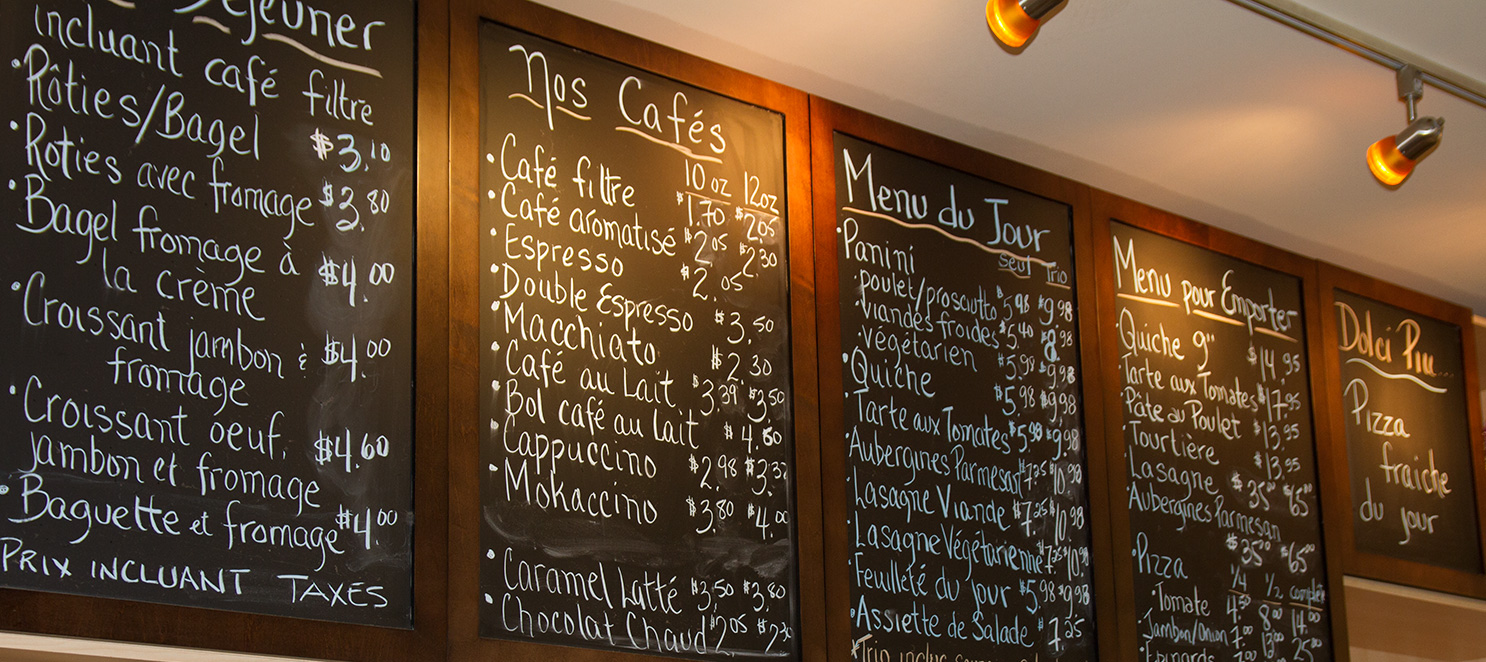 Déjeuner
incluant café filtre
• Rôties/Bagel $3.10
• Roties avec fromage $3.80
• Bagel fromage à
la crème $4.00
• Croissant jambon &
fromage $4.00
• Croissant oeuf,
jambon et fromage $4.60
• Baguette et fromage $4.00
PRIX INCLUANT TAXES
Nos Cafés
10 oz 12oz
• Café filtre $1.70 $2.05
• Café aromatisé $2.05 $2.30
• Espresso $2.05
• Double Espresso $3.50
• Macchiato $2.30
• Café au Lait $3.39 $3.50
• Bol café au Lait $4.60
• Cappuccino $2.98 $3.32
• Mokaccino $3.80 $4.00
• Caramel Latté $3.50 $3.80
• Chocolat Chaud $2.05
Menu du Jour
Seul Trio
• Panini
• poulet/prosciutto $5.98 $9.98
• viandes froides $5.40
• végétarien $5.98 $9.98
• Quiche $5.98 $9.98
• Tarte aux Tomates $5.98 $9.98
• Aubergines Parmesan $7.25 $10.98
• Lasagne Viande $7.25 $10.98
• Lasagne Végétarienne $7.25 $10.98
• Feuilleté du jour $5.98 $9.98
• Assiette de Salade $7.25
*Trio inclus
Menu pour Emporter
• Quiche 9" $14.95
• Tarte aux Tomates $17.95
• Pâte au Poulet $13.95
• Tourtière $13.95
• Lasagne $35.00 $65.00
• Aubergines Parmesan
$35.00 $65.00
• Pizza 1/4 1/2 complète
• Tomate 4.50 8.00 14.00
• Jambon/Onion 7.00 13.00 25.00
• Épinards 7.00
Dolci Piu...
Pizza
fraiche
du jour